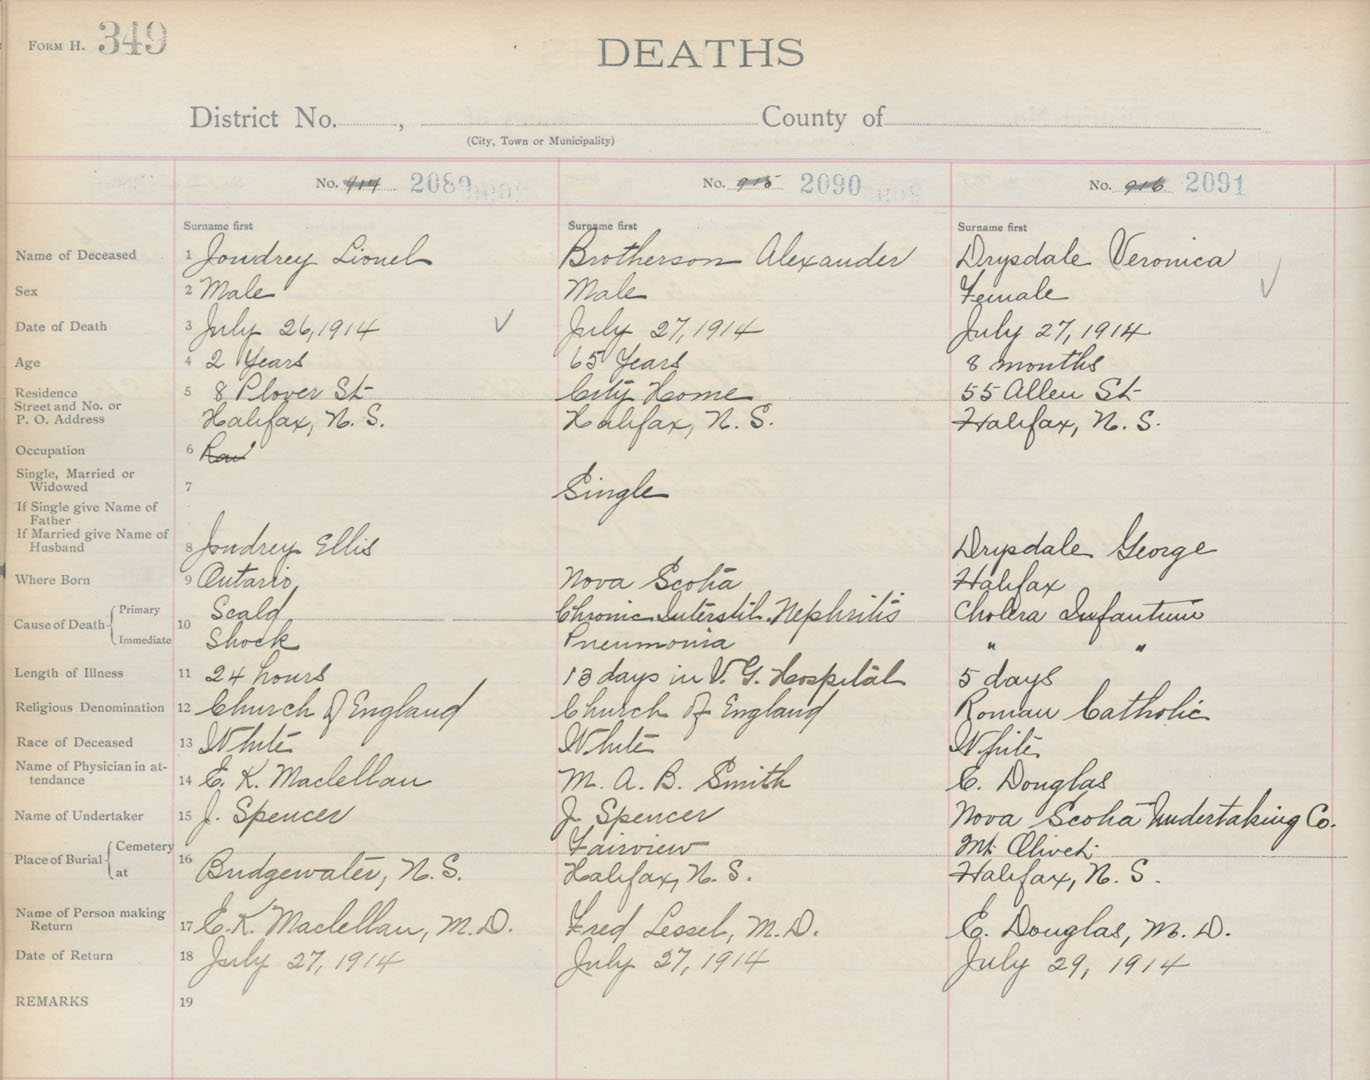 FORM H. 349
DEATHS
District No. , County of
(City, Town or Municipality)
No. 914 2089 No. 915 2090 No. 916 2091
Surname first Surname first Surname first
Name of Deceased 1 Joudrey Lionel Brotherson Alexander Drysdale Veronica
Sex 2 Male Male Female
Date of Death 3 July 26, 1914 July 27, 1914 July 27, 1914
Age 4 2 Years 65 Years 8 months
Residence 5 8 Plover St City Home 55 Allen St
Street and No. or
P. O. Address Halifax, N. S. Halifax, N. S. Halifax, N. S.
Occupation 6
Single, Married or
Widowed 7 Single
If Single give Name of
Father
If Married give Name of
Husband 8 Joudrey Ellis Drysdale George
Where Born 9 Ontario Nova Scotia Halifax
Cause of Death Primary 10 Scald Chronic Interstit. Nephritis Cholera Infantum
Immediate Shock Pneumonia " "
Length of Illness 11 24 hours 13 days in V. G. Hospital 5 days
Religious Denomination 12 Church of England Church of England Roman Catholic
Race of Deceased 13 White White White
Name of Physician in at-
tendance 14 E. K. Maclellan M. A. B. Smith E. Douglas
Name of Undertaker 15 J. Spencer J. Spencer Nova Scotia Undertaking Co.
Place of Burial Cemetery 16 Fairview Mt. Olivet
at Bridgewater, N. S. Halifax, N. S. Halifax, N. S.
Name of Person making
Return 17 E. K. Maclellan, M. D. Fred Lessel, M. D. E. Douglas, M. D.
Date of Return 18 July 27, 1914 July 27, 1914 July 29, 1914
REMARKS 19